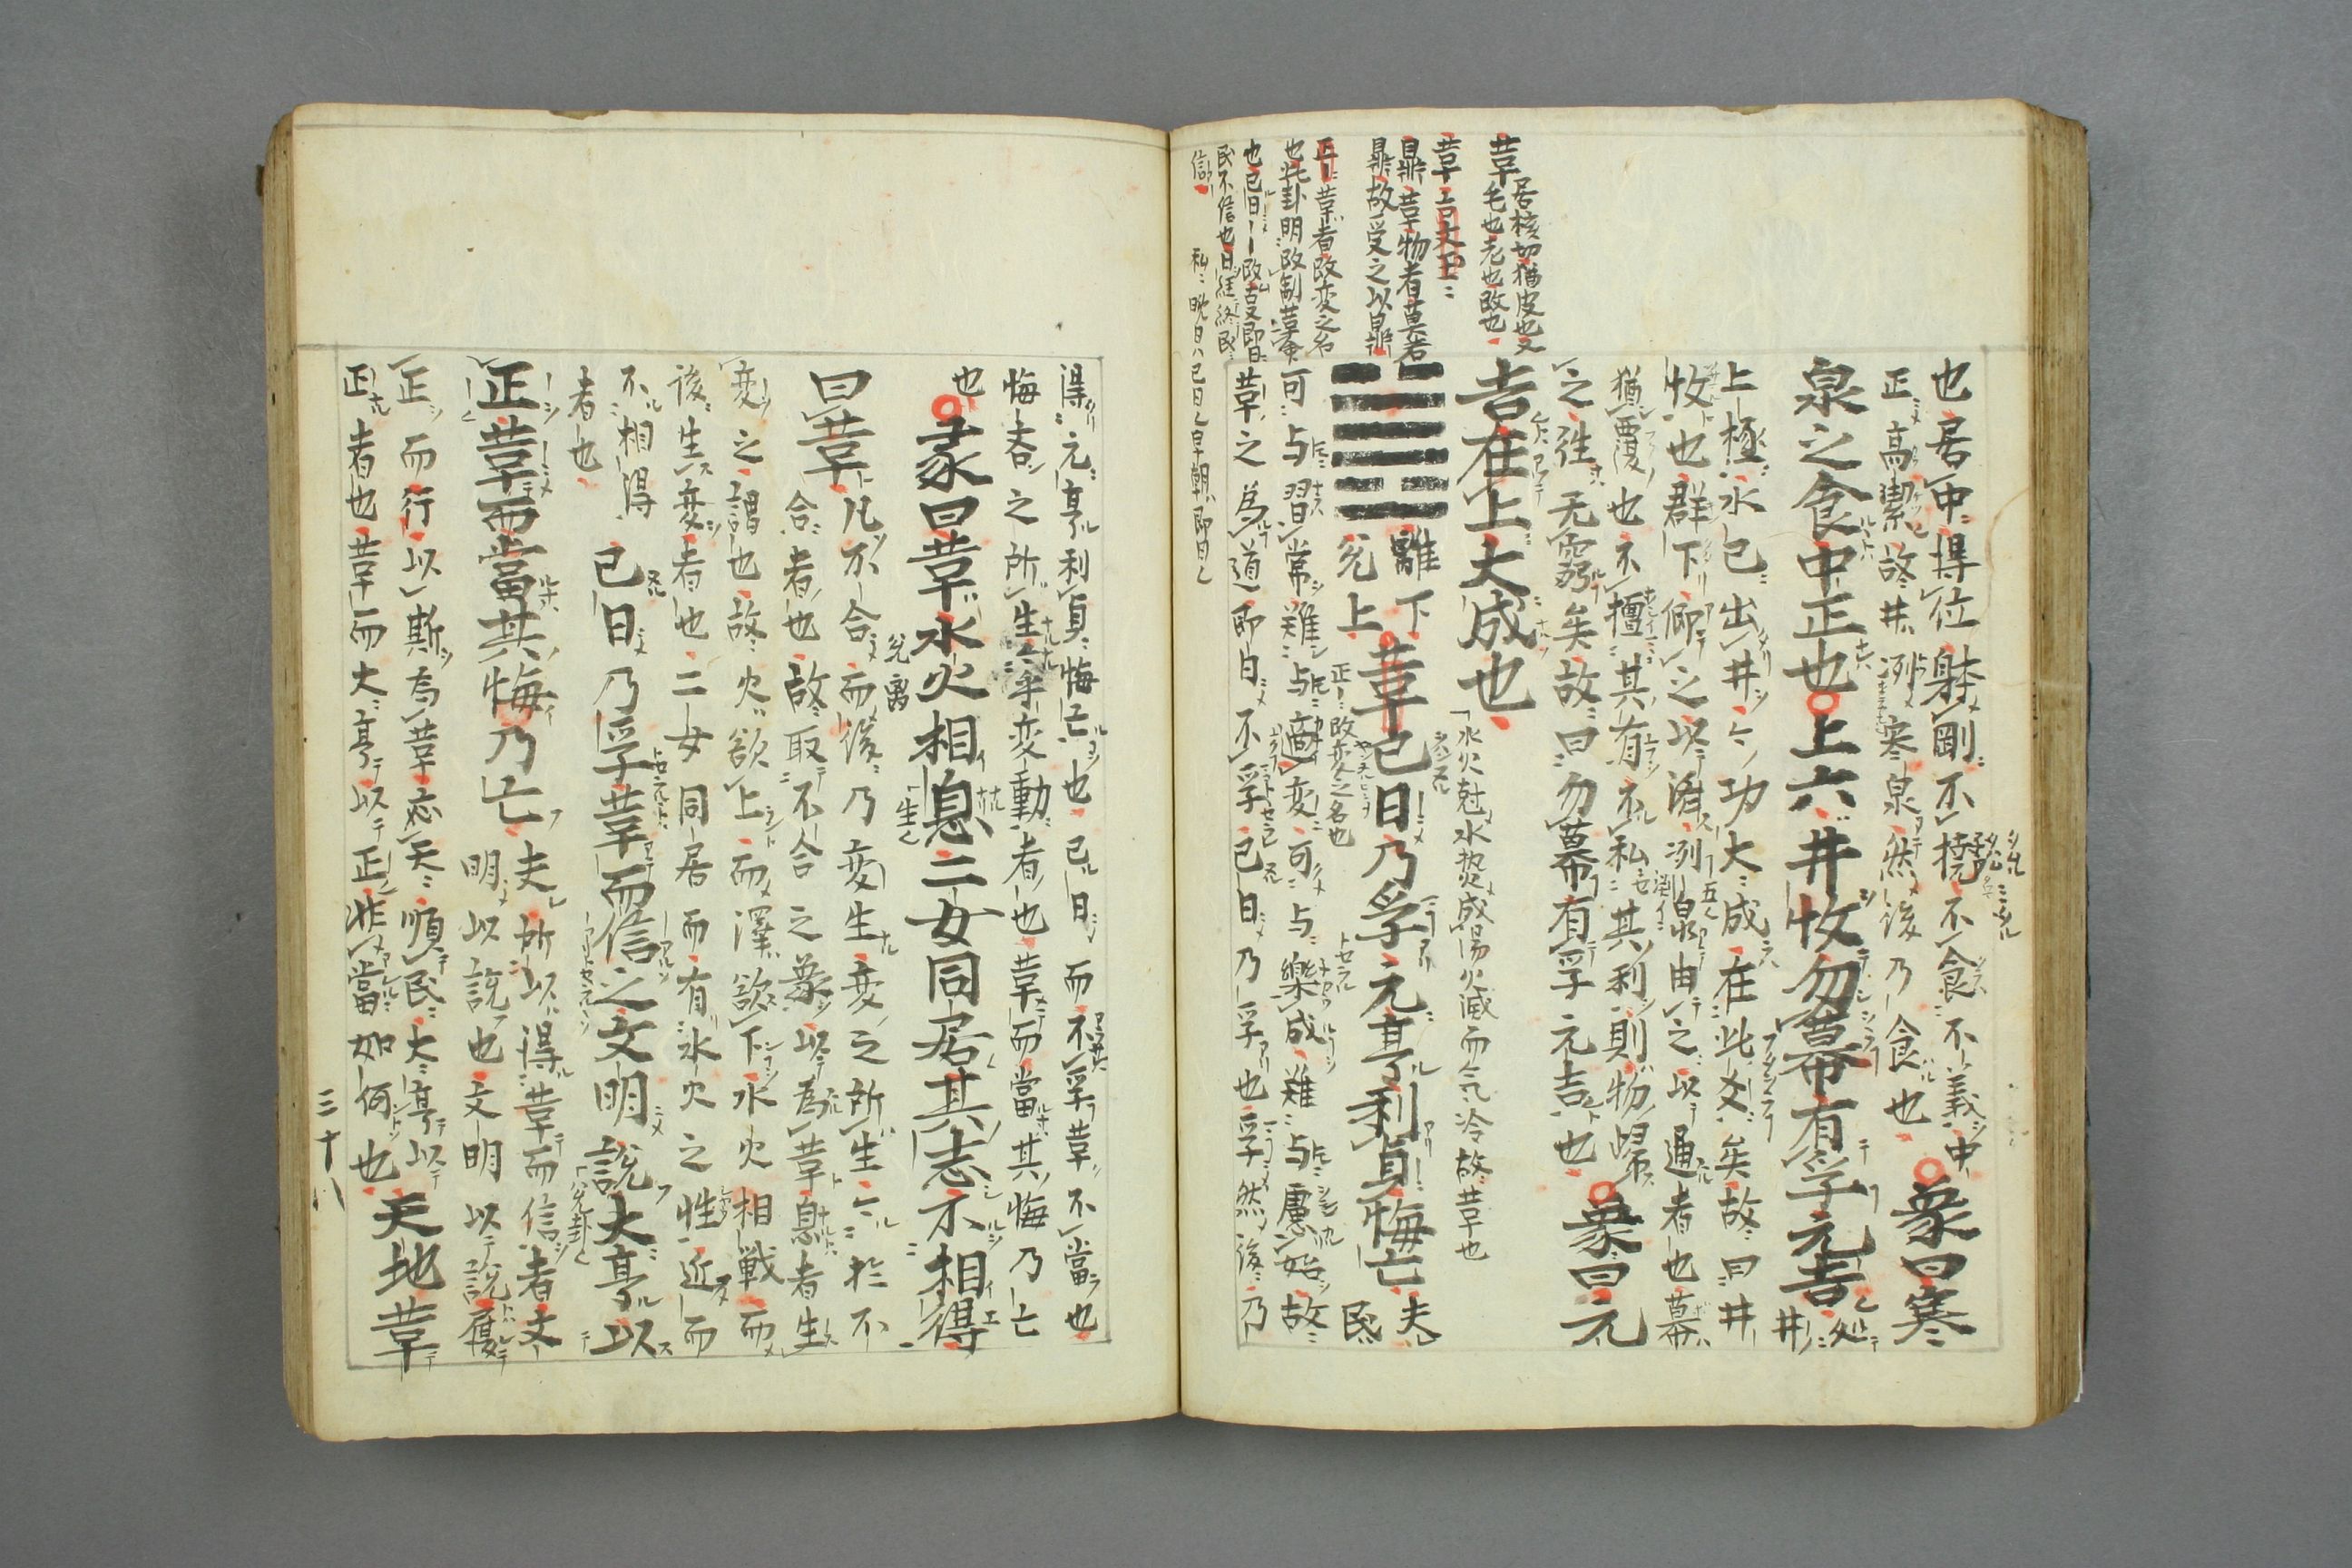 革居核切猶皮也又
毛也老也改也
革言文王
鼎革物者莫若
鼎故受之以鼎
正革者改変之名
也此卦明改制革命
也已日改变即日
民不信也日経終民
信
私晩日ハ已日也早朝ハ即日也
也居中得位躰剛不撓不食不義中
正高潔故井冽寒泉然後乃食也象曰寒
泉之食中正也上六井收勿幕有孚元吉処井
上極水已出井々功大成在此爻矣故曰井
收也群下仰之以済冽泉由之以通者也幕
猶覆也不擅其有不私其利則物歸
之往无窮矣故曰勿幕有孚元吉也象曰元
吉在上大成也
水火尅水熱成湯火滅而気冷故革也
離下
兌上革已日乃孚元亨利貞悔亡夫民
正改変之名也
可与習常難与適変可与樂成難与慮始故
革之為道即日不孚已日乃孚也孚然後乃
得元亨利貞悔亡也已日而不孚革不當也
悔吝之所生生乎変動者也革而當其悔乃亡
也彖曰革水火相息二女同居其志不相得
生也
曰革凡不合而後乃変生変之所生々於不
兌離
合者也故取不合之象以為革息者生
変之謂也故火欲上而澤欲下水火相戦而
後生変者也二女同居而有水火之性近而
不相得
者也已日乃孚革而信之文明說大亨以
兌卦也
正革而當其悔乃亡夫所以得革而信者文
明以說也文明以說履
正而行以斯為革応天順民大亨以
正者也革而大亨以正非當如何也天地革
三十八